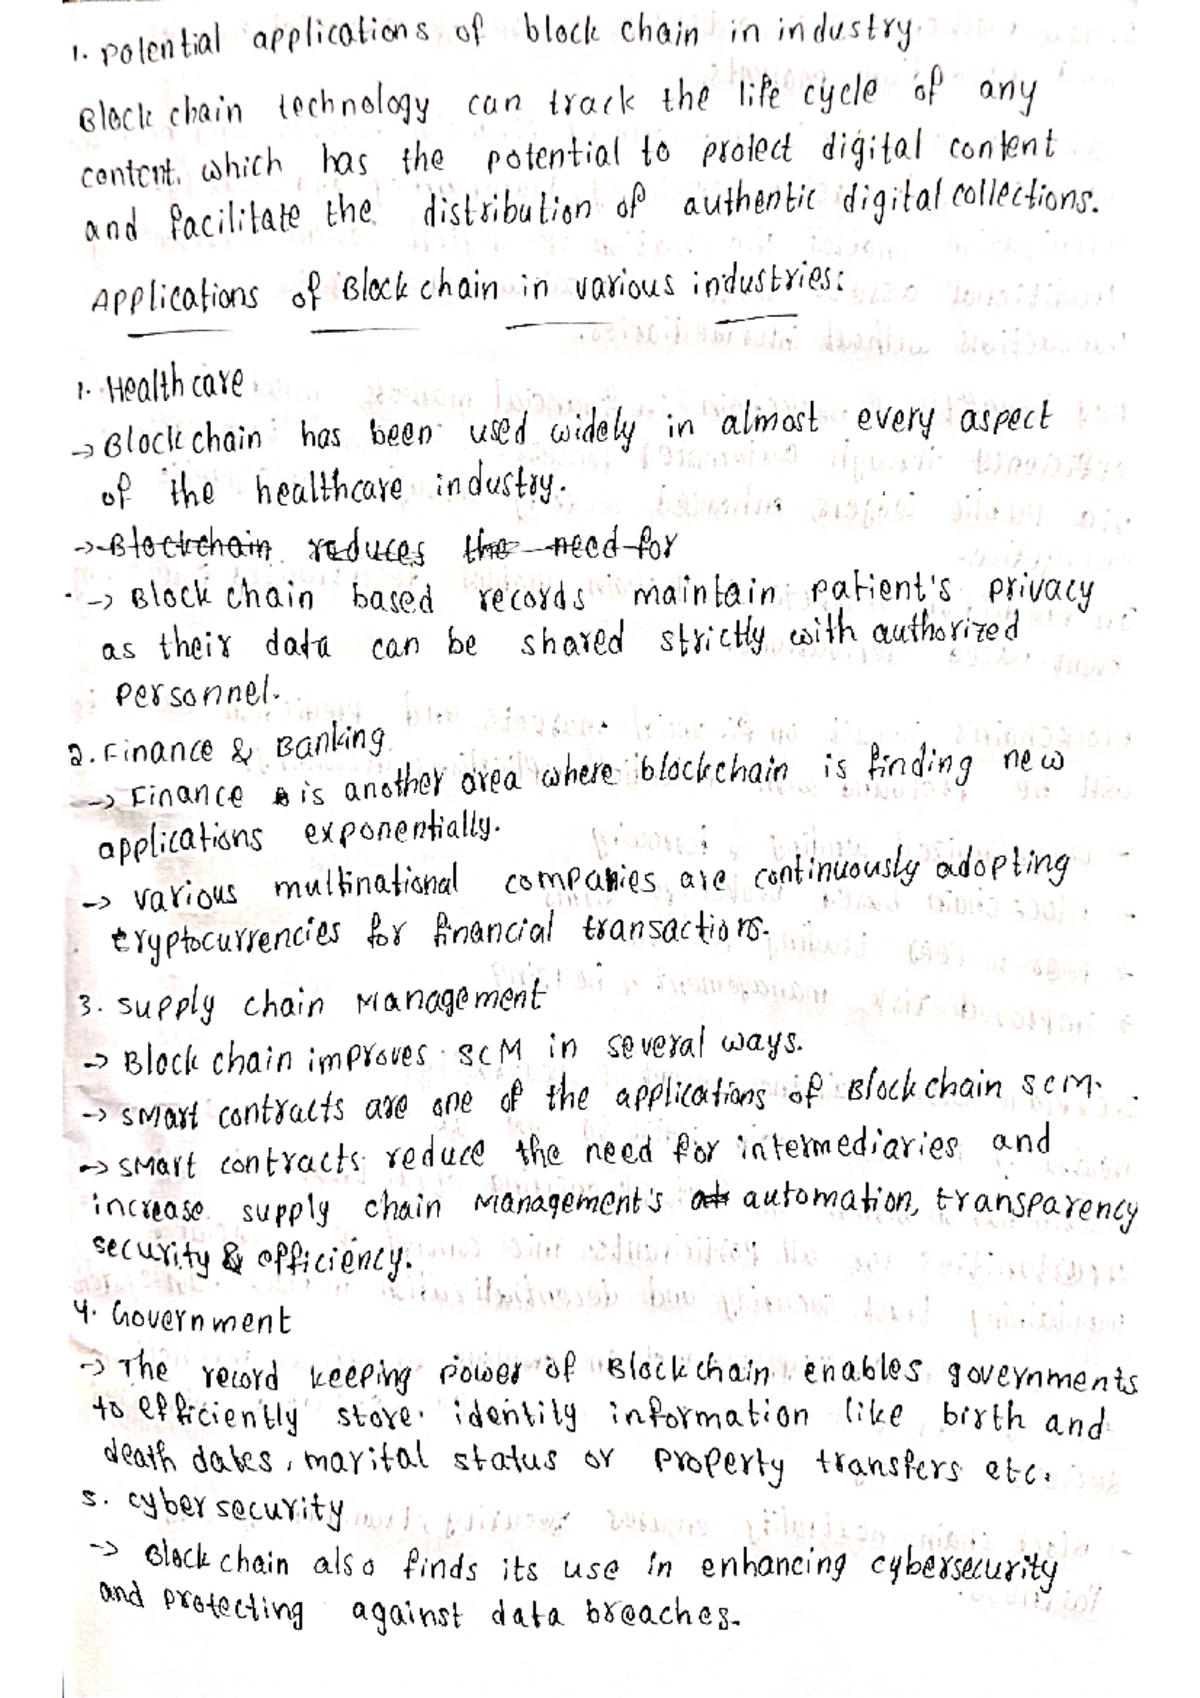 1. Potential applications of block chain in industry.
Block chain technology can track the life cycle of any
content. which has the potential to protect digital content
and facilitate the distribution of authentic digital collections.
Applications of Block chain in various industries:
1. Health care
→ Block chain has been used widely in almost every aspect
of the healthcare industry.
→ Blockchain reduces the need for
→ Block chain based records maintain patient's privacy
as their data can be shared strictly with authorized
personnel.
2. Finance & Banking
→ Finance is another area where blockchain is finding new
applications exponentially.
→ various multinational companies are continuously adopting
cryptocurrencies for financial transactions.
3. Supply chain Management
→ Block chain improves SCM in several ways.
→ SMart contracts are one of the applications of Block chain SCM.
→ SMart contracts reduce the need for intermediaries and
increase supply chain Management's automation, transparency
security & efficiency.
4. Government
→ The record keeping power of Block chain enables governments
to efficiently store identity information like birth and
death dates, marital status or property transfers etc.
5. cyber security
→ Block chain also finds its use in enhancing cybersecurity
and protecting against data breaches.